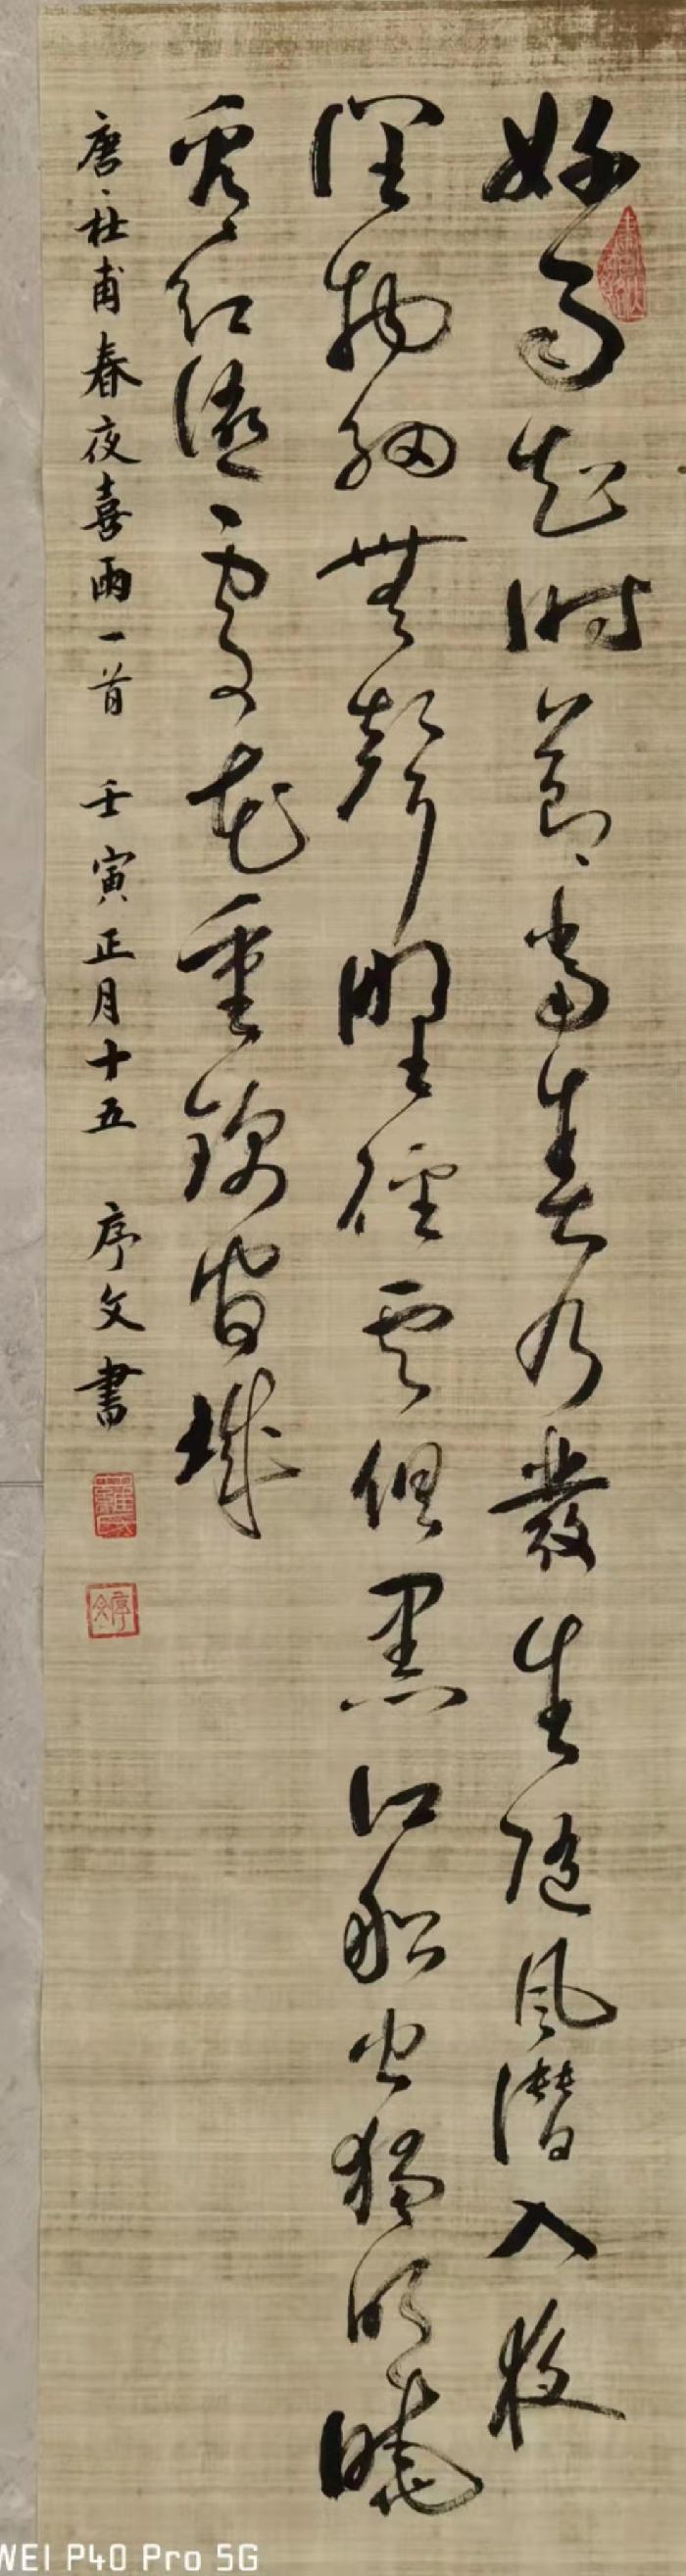 好雨知时節當春乃發生随風潛入夜
潤物細無聲野徑雲俱黑江船火獨明曉
看紅濕處花重錦官城
唐杜甫春夜喜雨一首 壬寅正月十五 序文書
WEI P40 Pro 5G